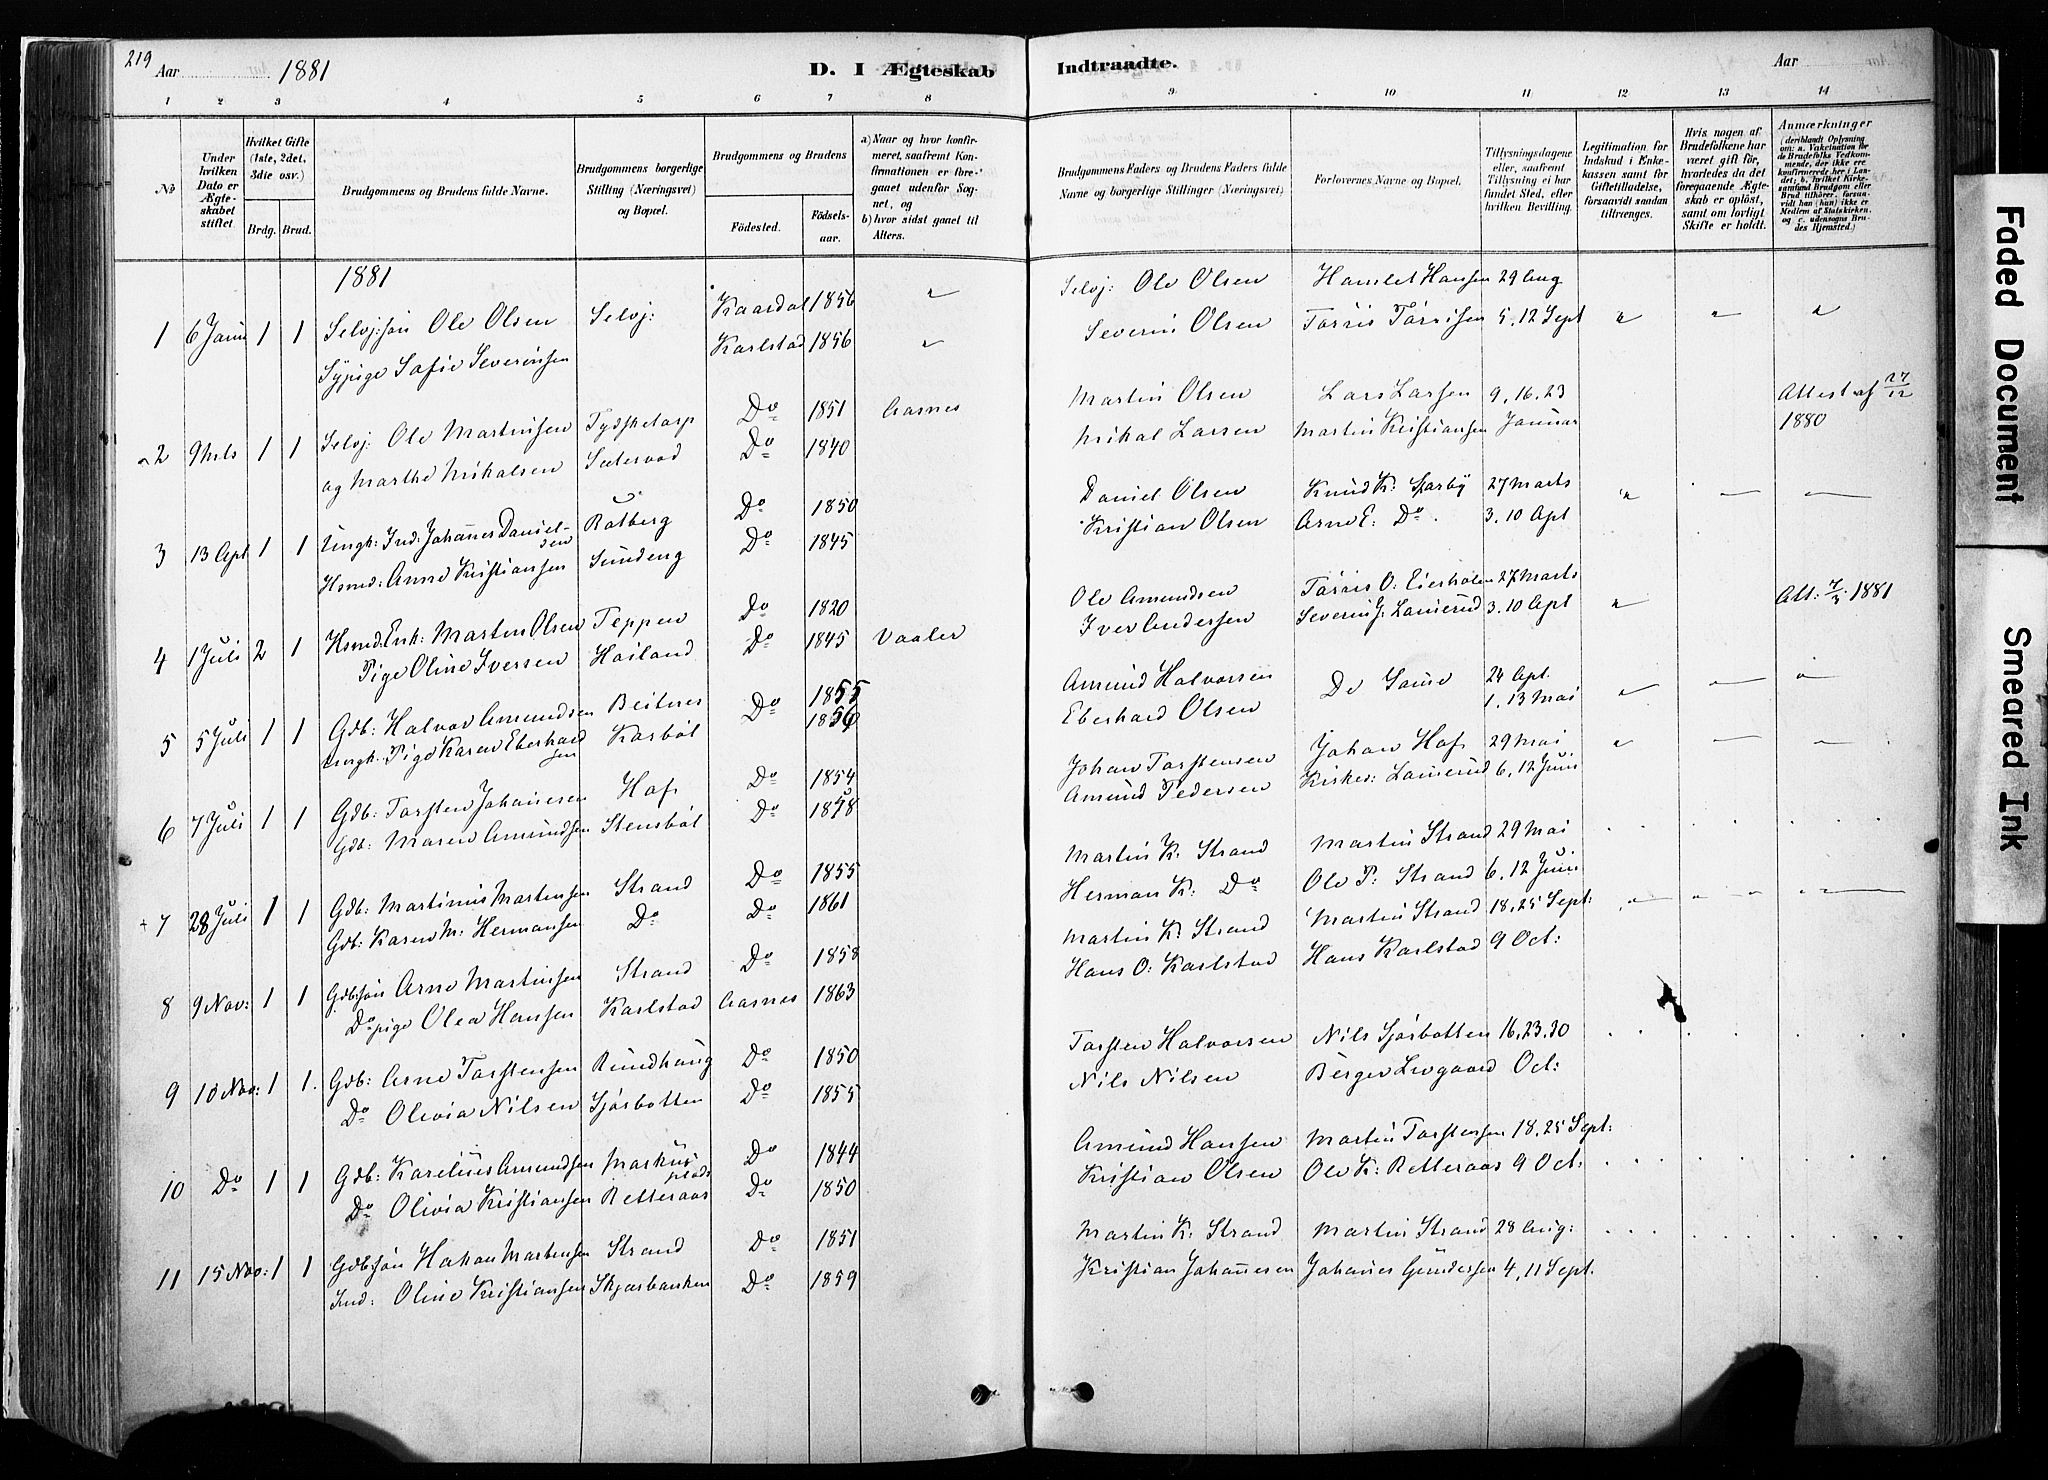 219 Aar 1881 D. I Ægteskab Indtraadte. Aar
1 2 3 4 5 6 7 8 9 10 11 12 13 14
No
Under hvilken Dato er Ægteskabet stiftet.
Hvilket Gifte (1ste, 2det, 3die osv.)
Brdg. Brud.
Brudgommens og Brudens fulde Navne.
Brudgommens borgerlige Stilling (Næringsvei) og Bopæl.
Brudgommens og Brudens
Födested. Födselsaar.
a) Naar og hvor konfirmeret, saafremt Konfirmationen er foregaaet udenfor Sognet, og
b) hvor sidst gaaet til Alters.
Brudgommens Faders og Brudens Faders fulde Navne og borgerlige Stillinger (Næringsvei)
Forlovernes Navne og Bopæl.
Tillysningsdagene eller, saafremt Tillysning ei har fundet Sted, efter hvilken Bevilling.
Legitimation for Indskud i Enkekassen samt for Giftetilladelse, forsaavidt saadan tiltrænges.
Hvis nogen af Brudefolkene har været gift för, hvorledes da det foregaaende Ægteskab er oplöst, samt om lovligt Skifte er holdt.
Anmærkninger
(deriblandt Oplysning om: a. Vakcination for de Brudefolks Vedkommende, der ikke ere konfirmerede her i Landet; b. hvilket Kirkesamfund Brudgom eller Brud tilhörer, forsaavidt han (hun) ikke er Medlem af Statskirken, og c. udensogns Brudes Hjemsted.)
1881
1 6 Janu 1 1 Selvj:søn Ole Olsen Selvj: Kaardal 1856 " Selvj: Ole Olsen Hamlet Hansen 29 Aug
Sypige Sofie Severinsen Karlstad 1856 " Severin Olsen Torris Torrisen 5, 12 Sept " " "
2 9 Mts 1 1 Selvj: Ole Martinsen Tydsketorp Do 1851 Aasnes Martin Olsen Lars Larsen 9, 16, 23 Attest af 27/12
og Marthe Mikalsen Sætervad Do 1840 Mikal Larsen Martin Kristiansen Januar 1880
3 13 Apl 1 1 Ungk: Ind: Johannes Danielsen Rotberg Do 1850 Daniel Olsen Knud K: Sparby 27 Marts " — —
Hsmd: Anne Kristiansen Sundeng Do 1845 Kristian Olsen Arne E: Do 3, 10 Apl
4 1 Juli 2 1 Hsmd: Enk: Martin Olsen Teppen Do 1820 Ole Amundsen Torris O: 27 Marts
Pige Oline Iversen Hoiland Do 1845 Vaaler Iver Andersen Severin J: Lamerud 3, 10 Apl " Att: 7/3 1881
5 5 Juli 1 1 Gdb: Halvor Amundsen Beitnes Do 1855 Amund Halvorsen De Same 24 Apl. " — "
Ungk. Pige Karen Eberhardsen Kasböl 1856 Eberhard Olsen 1, 13 Mai
6 7 Juli 1 1 Gdb: Torsten Johansen Hof Do 1854 Johan Torstensen Johan Hof 29 Mai " — —
Gdb: Maren Amundsen Stensböl Do 1858 Amund Pedersen Kirkes: Lamerud 6, 12 Juni
7 28 Juli 1 1 Gdb: Martinius Martinsen Strand Do 1855 Martin K. Strand Martin Strand 29 Mai
Gdb: Karen M: Hermansen Do Do 1861 Herman K: Do Ole P: Strand 6, 12 Juni
8 9 Nov: 1 1 Gdbsøn Arne Martinsen Strand Do 1858 Martin K. Strand Martin Strand 18, 25 Sept:
Do pige Olea Hansen Karlstad Aasnes 1863 Hans O: Karlstad Hans Karlstad 9 Oct:
9 10 Nov: 1 1. Gdb: Arne Torstensen Rundhaug Do 1850 Torsten Halvorsen Nils Sjösbotten 16, 23, 30
Do Olivia Nilsen Sjösbotten Do 1855 Nils Nilsen Berger Livgaard Oct:
10 Do 1 1 Gdb: Karelius Amundsen Markusplads Do 1844 Amund Hansen Martin Torstensen 18, 25 Sept:
Do Olivia Kristiansen Retteraas Do 1850 Kristian Olsen Ole K: Retteraas 9 Oct:
11 15 Nov: 1 1 Gdbsøn Hakan Martinsen Strand Do 1851 Martin K. Strand Martin Strand 28 Aug:
Ind: Oline Kristiansen Skjæsbanken Do 1859 Kristian Johannesen Johannes Gundersen 4, 11 Sept.
Faded Document
Smeared Ink